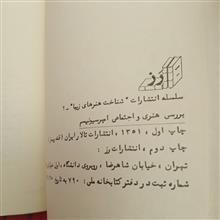 رز
سلسله انتشارات "شناخت هنرهای زیبا" - ۲
بررسی هنری و اجتماعی امپرسیونیسم
چاپ اول ، ۱۳۵۱ ، انتشارات تالار ایران (قندریز)
چاپ دوم ، انتشارات رز :
تهران ، خیابان شاهرضا ، روبروی دانشگاه ،
شماره ثبت در دفتر کتابخانه ملی : ۷۹۰ به تاریخ